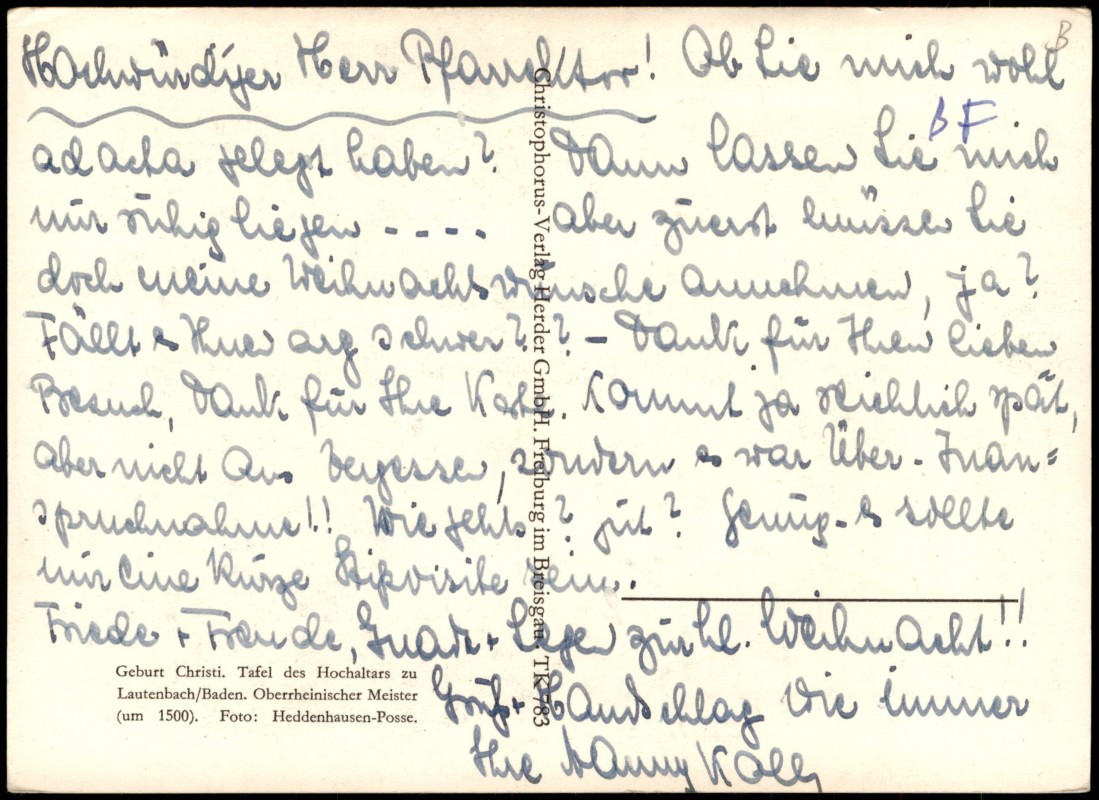 B
Hochwürdiger Herr Pfarrektor! Ob Sie mich wohl
BF
ad acta gelegt haben? Dann lassen Sie mich
nur ruhig liegen - - - - aber zuerst müssen Sie
doch meine Weihnachtswünsche annehmen, ja?
Fällt es Ihnen arg schwer? ? – Dank für Ihren lieben
Besuch, Dank für Ihre Karte. Kommt ja reichlich spät,
aber nicht aus Vergessen, sondern es war Über-Inan=
spruchnahme!! Wie gehts? gut? Genug - es sollte
nur eine kurze Stipvisite sein.
Friede + Freude, Gnade + Segen zur hl. Weihnacht!!
Gruß + Handschlag wie immer
Ihre
Christophorus-Verlag Herder GmbH. Freiburg im Breisgau. TK 783
Geburt Christi. Tafel des Hochaltars zu
Lautenbach/Baden. Oberrheinischer Meister
(um 1500). Foto: Heddenhausen-Posse.